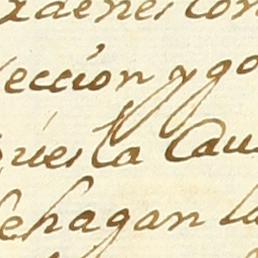 rdenes con
ección y go
puesta Cau
se hagan la